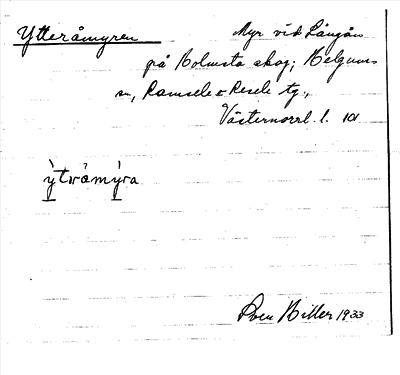 Ytteråmyren Myr vid Långån
på Holmsta skog, Helgums
sn, Ramsele o Resele tg.,
Västernorrl. l. 101
ỳtråmýra
Sven Biller 1933